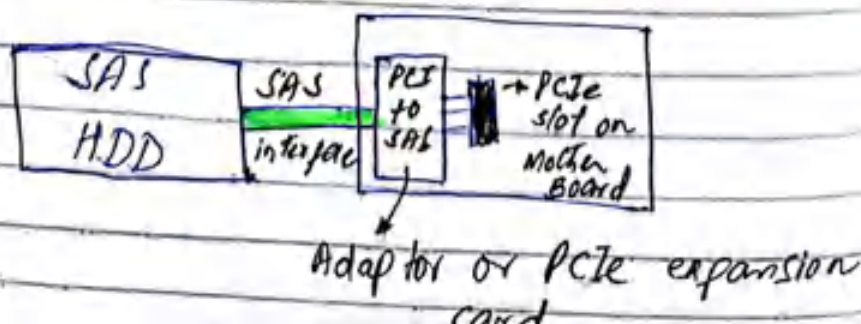 SAS
HDD
SAS
interface
PCI
to
SAS
→ PCIe
slot on
Mother
Board
Adaptor or PCIe expansion
card